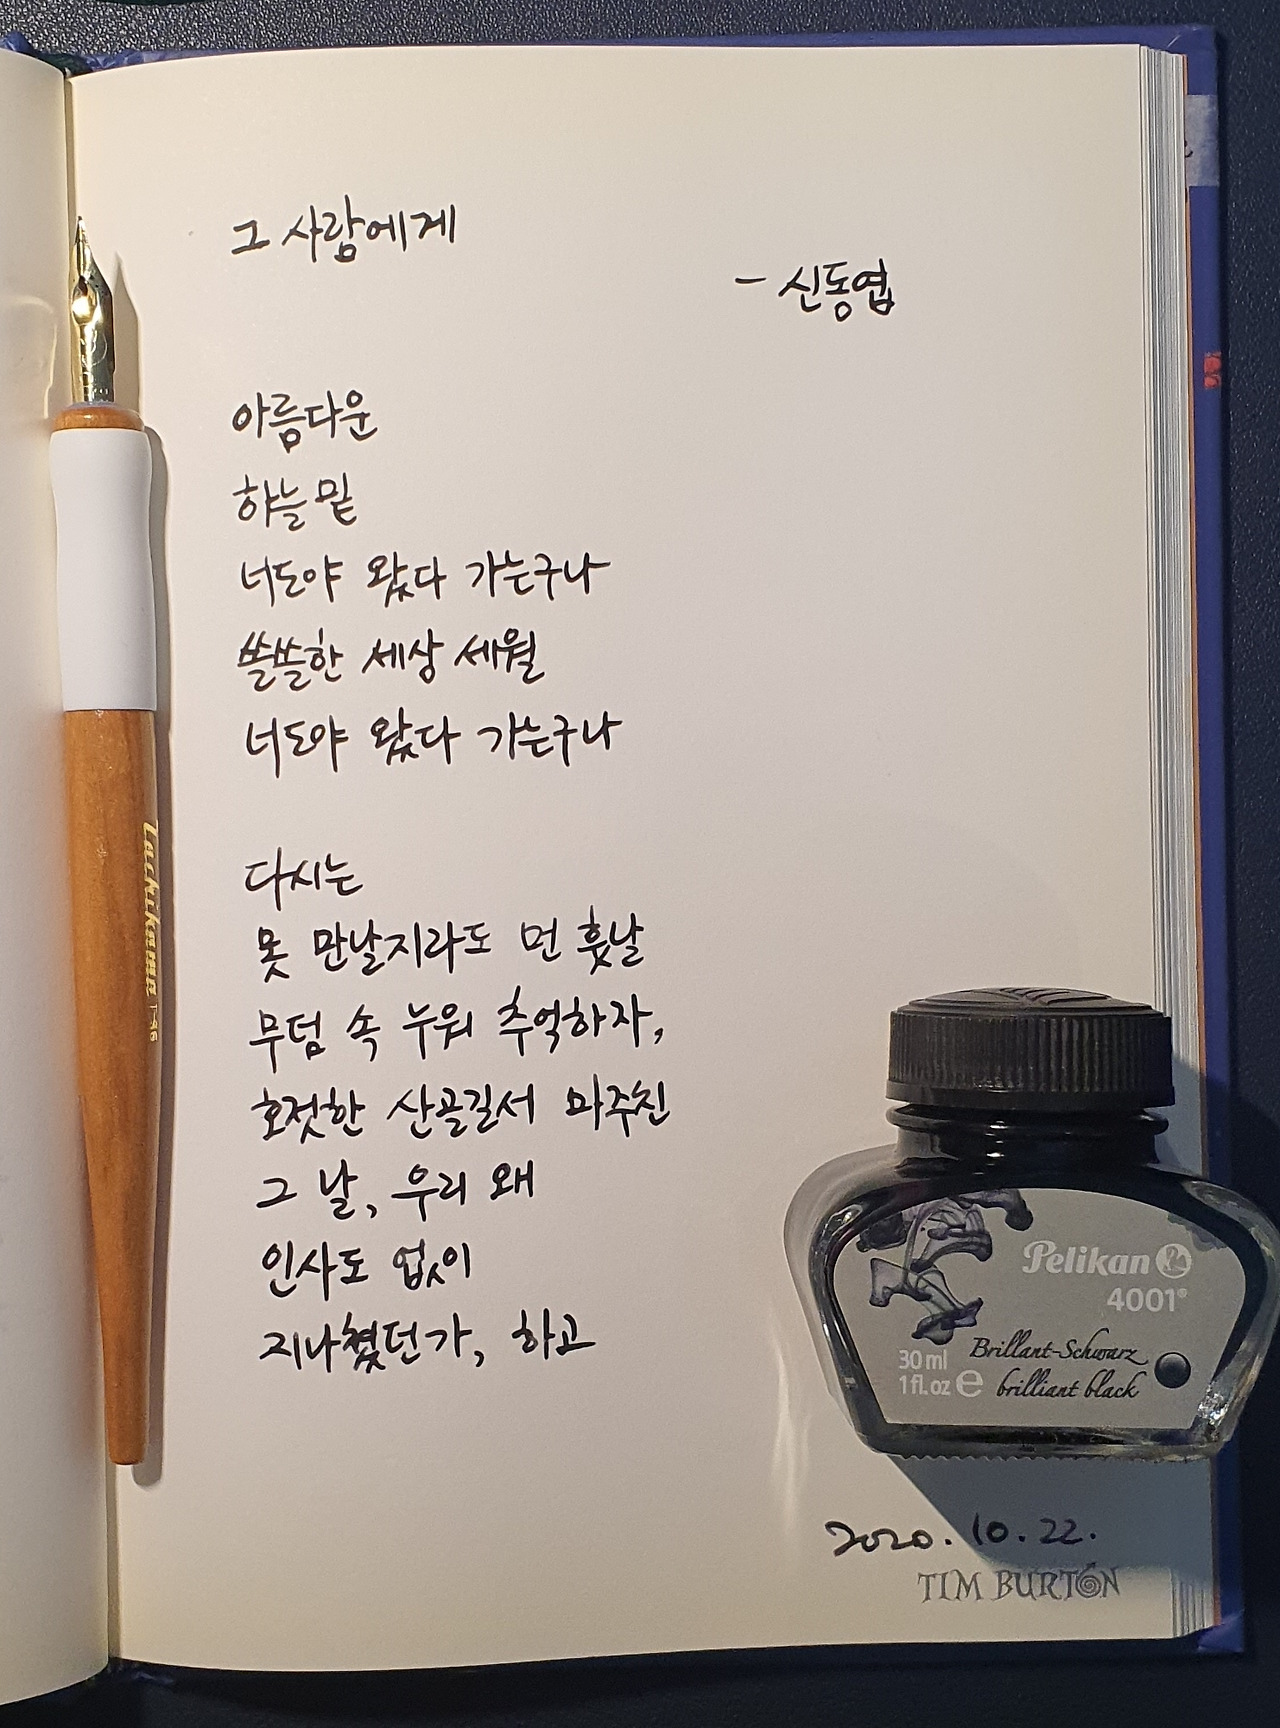 그 사람에게
- 신동엽
아름다운
하늘 밑
너도야 왔다 가는구나
쓸쓸한 세상 세월
너도야 왔다 가는구나
다시는
못 만날지라도 먼 훗날
무덤 속 누워 추억하자,
호젓한 산골길서 마주친
그 날, 우리 왜
인사도 없이
지나쳤던가, 하고
Tachikawa T-36
Pelikan
4001®
Brillant-Schwarz
30 ml
1 fl. oz e brilliant black
2020. 10. 22.
TIM BURTON